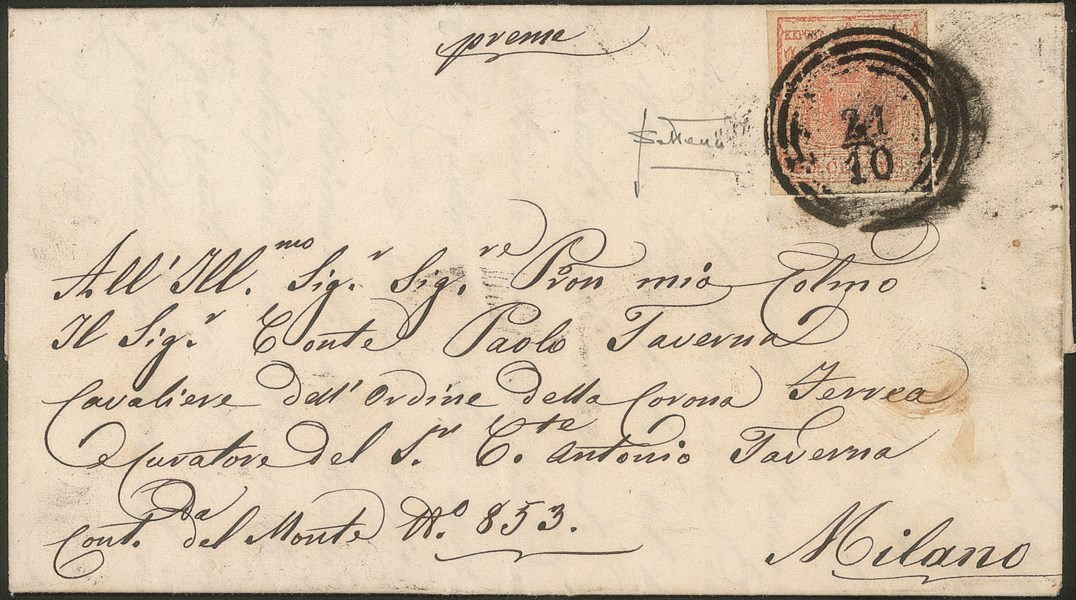 prema
KKPOST
21
10
All' Ill.mo Sig.r Sig.re Pron mio Colmo
Il Sig.r Conte Paolo Taverna
Cavaliere dell' Ordine della Corona Ferrea
e Curatore del S.r C.te Antonio Taverna
Cont.da del Monte N.o 853.
Milano